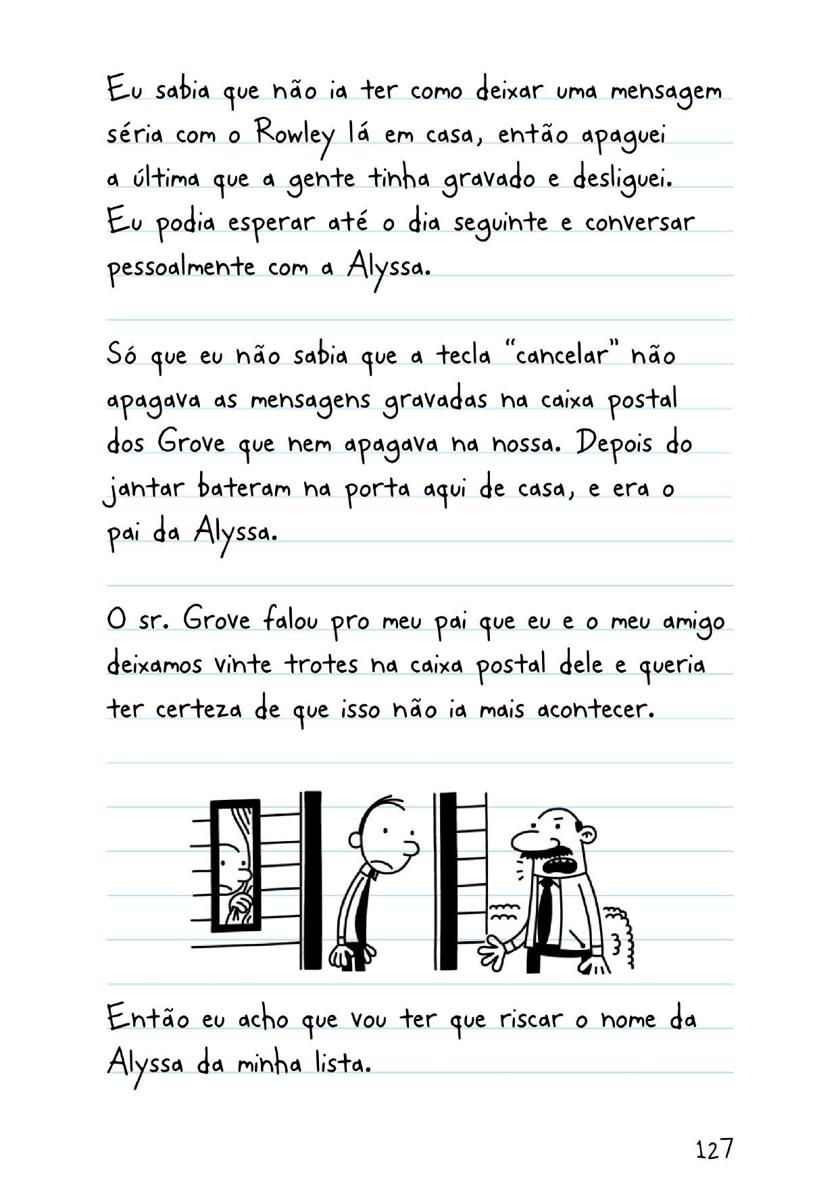 Eu sabia que não ia ter como deixar uma mensagem
séria com o Rowley lá em casa, então apaguei
a última que a gente tinha gravado e desliguei.
Eu podia esperar até o dia seguinte e conversar
pessoalmente com a Alyssa.
Só que eu não sabia que a tecla “cancelar” não
apagava as mensagens gravadas na caixa postal
dos Grove que nem apagava na nossa. Depois do
jantar bateram na porta aqui de casa, e era o
pai da Alyssa.
O sr. Grove falou pro meu pai que eu e o meu amigo
deixamos vinte trotes na caixa postal dele e queria
ter certeza de que isso não ia mais acontecer.
Então eu acho que vou ter que riscar o nome da
Alyssa da minha lista.
127